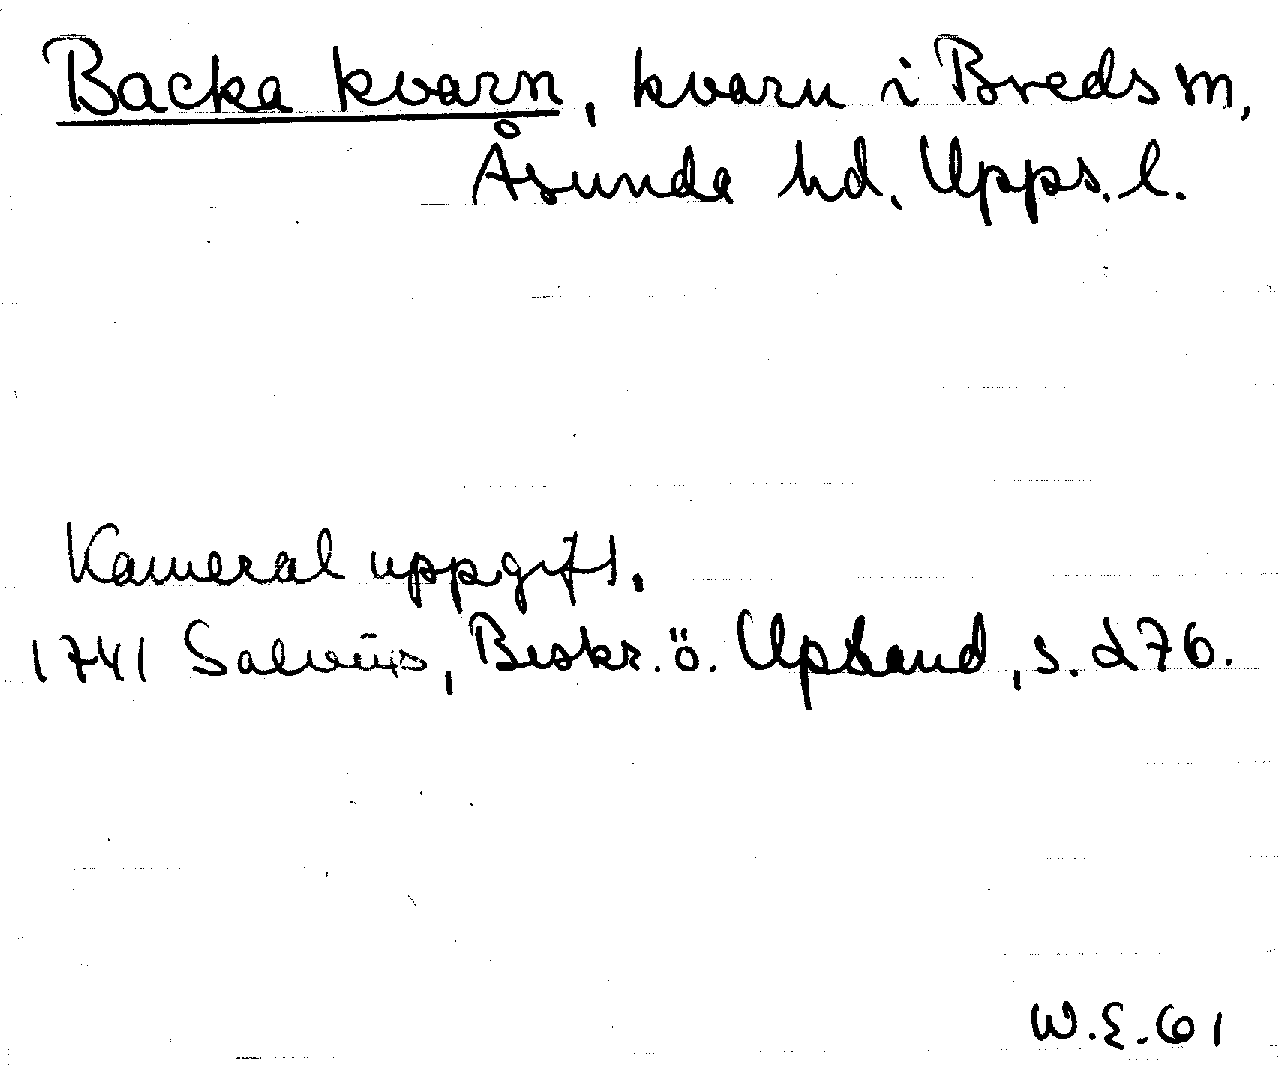 Backa kvarn, kvarn i Breds sn,
Åsunda hd. Upps. l.
Kameral uppgift.
1741 Salvius, Beskr. ö. Upland, s. 276.
W.E. 61